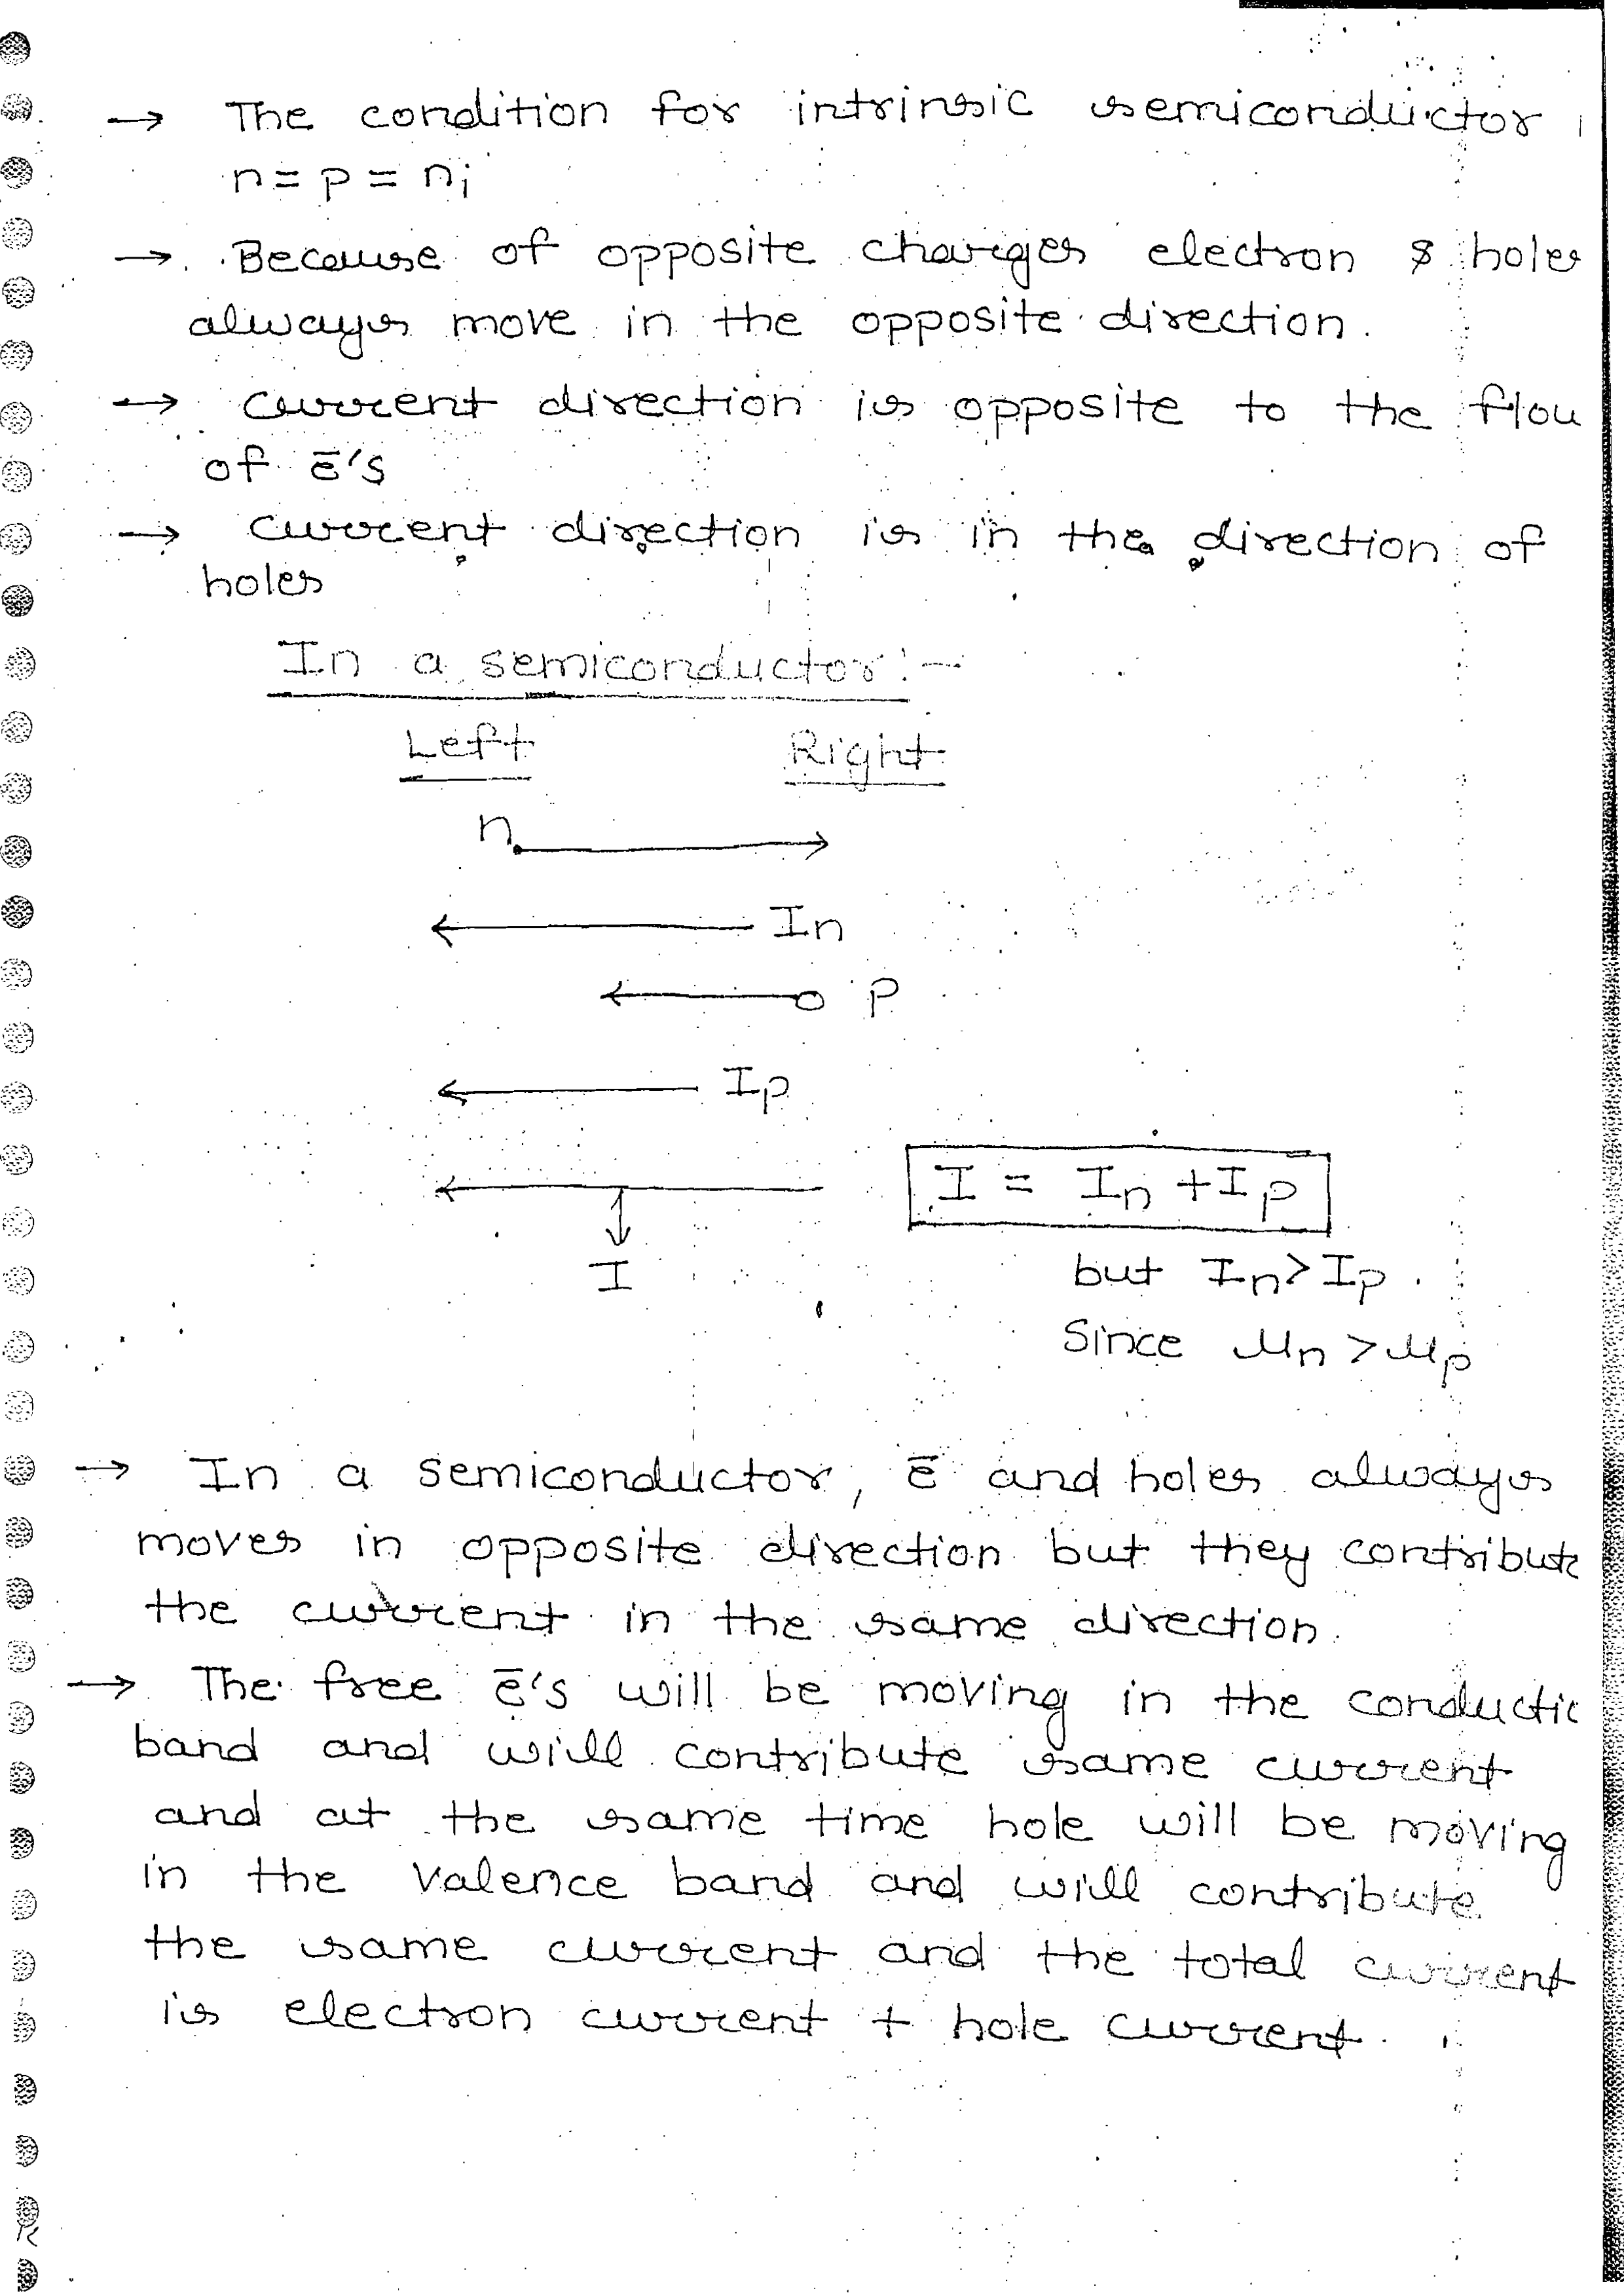 → The condition for intrinsic semiconductor
n = p = ni
→ Because of opposite charges electron & holes
always move in the opposite direction.
→ current direction is opposite to the flow
of ē's
→ current direction is in the direction of
holes
In a semiconductor:-
Left Right
n
In
P
Ip
I = In + Ip
I
but In > Ip.
Since μn > μp
→ In a semiconductor, ē and holes always
moves in opposite direction but they contribute
the current in the same direction.
→ The free ē's will be moving in the conductic
band and will contribute same current
and at the same time hole will be moving
in the valence band and will contribute
the same current and the total current
is electron current + hole current.